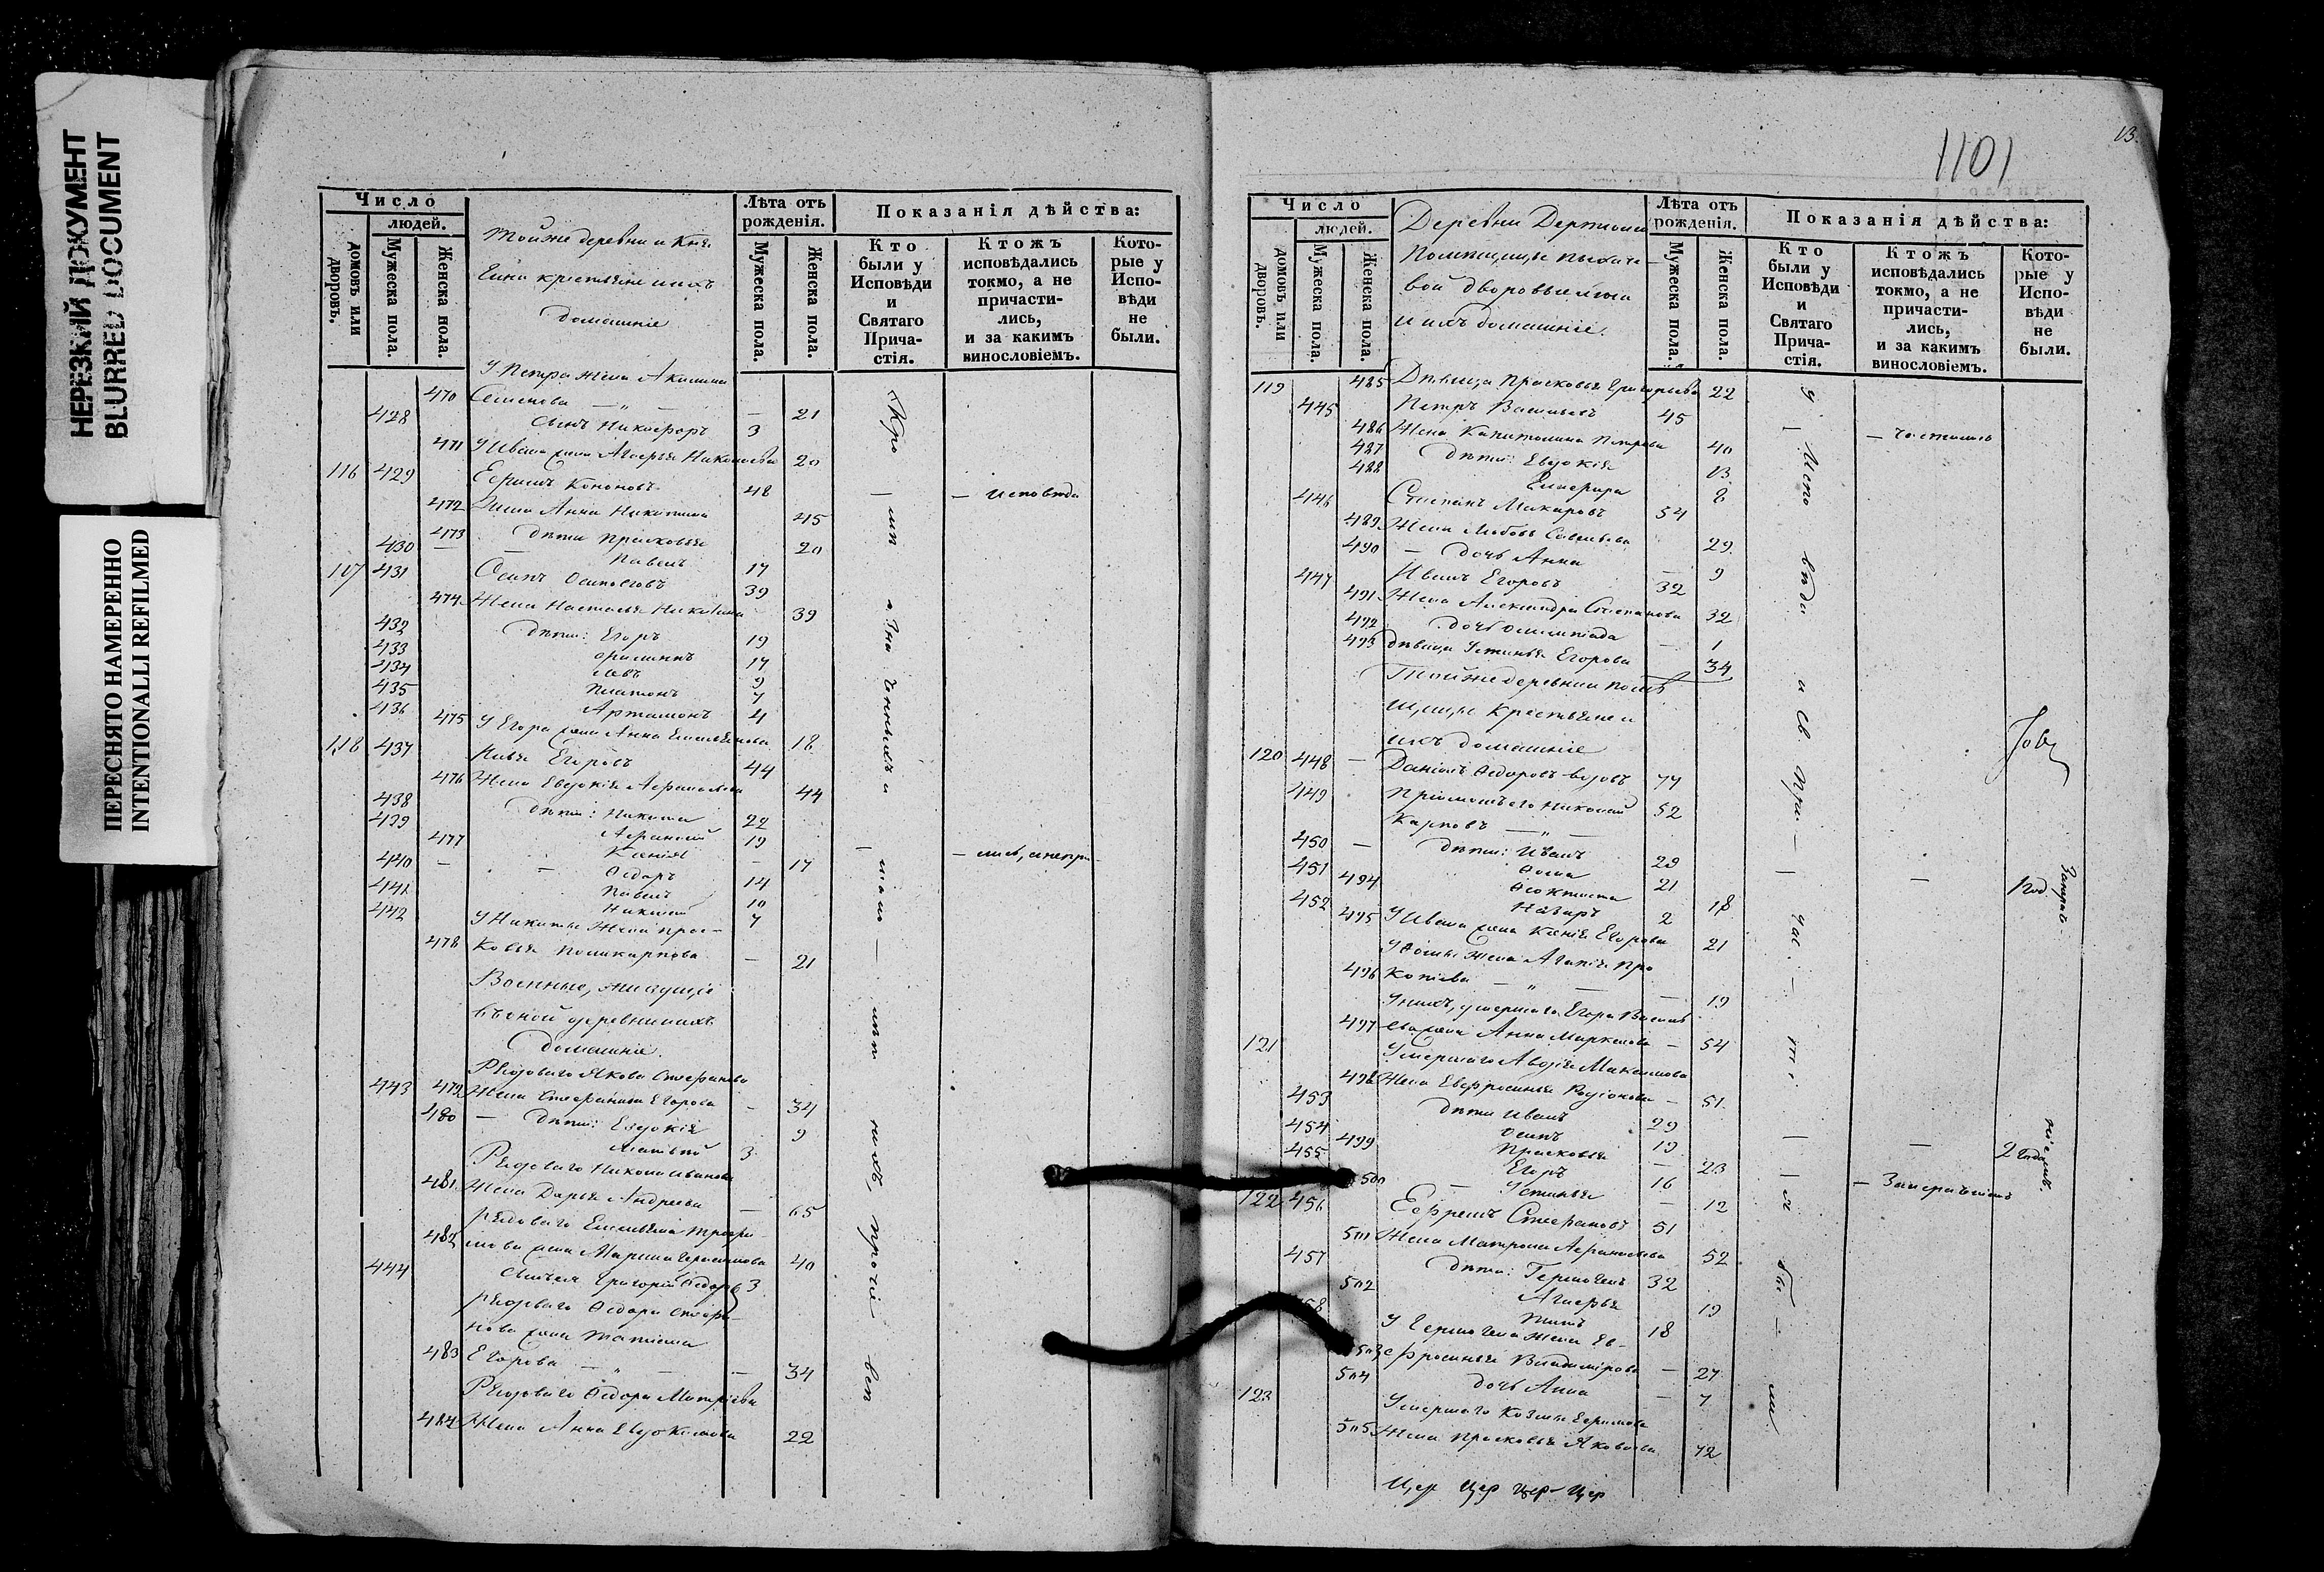 НЕРЕЗКИЙ ДОКУМЕНТ
BLURRED DOCUMENT
ПЕРЕСНЯТО НАМЕРЕННО
INTENTIONALLI REFILMED
Число
людей.
домовъ или дворовъ.
Мужеска пола.
Женска пола.
Тойже деревни и Кня-
крестьяне и ихъ
домашніе
Лѣта отъ рожденія.
Мужеска пола.
Женска пола.
Показанія дѣйства:
Кто были у Исповѣди и Святаго Прича-стія.
Ктожъ исповѣдались токмо, а не причасти-лись, и за какимъ винословіемъ.
Кото-рые у Испо-вѣди не были.
У Петра жена Акилина
470 Семенова — 21
428 Сынъ Никифоръ 3
471 У Ивана жена Агафья 20
116 429 Ефимъ Кононовъ 48
472 Жена Анна Никитина 45
473 Дѣти Прасковья 20
430 Павелъ 17
117 431 Осипъ Осиповъ 39
474 Жена Наталья 39
432 Дѣти: Егоръ 19
433 Филиппъ 17
434 Левъ 9
435 Платонъ 7
436 Артамонъ 4
475 У Егора жена Анна Емельянова 18
118 437 Егоровъ 44
476 Жена Евдокія Афанасьева 44
438 Дѣти: Никита 22
439 Афанасій 19
477 Ксенія 17
440 Ѳедоръ 14
441 Павелъ 10
442 Николай 7
У Никиты жена Прас-
478 ковья Поликарпова — 21
Военные, живущіе
въ оной деревни и ихъ
домашніе.
Рядоваго Якова Стефанова
443 479 Жена Стефанида Егорова — 34
480 — Дѣти: Евдокія 9
Матвѣй 3
Рядоваго Никона Иванова
481 Жена Дарья Андреева — 65
Рядоваго Емельяна Трофи-
482 мова жена Марина Герасимова 40
444 Григорій Ѳедоръ 3
Рядоваго Ѳедора Стефа-
нова жена Татіана
483 Егорова — 34
Рядоваго Ѳедора Матвѣева
484 Жена Анна Евдокимова 22
— исповѣда
— лись, а непри-
1101
13.
Число
людей.
домовъ или дворовъ.
Мужеска пола.
Женска пола.
Деревни
Помѣщицы
вой дворовые люди
и ихъ домашніе.
Лѣта отъ рожденія.
Мужеска пола.
Женска пола.
Показанія дѣйства:
Кто были у Исповѣди и Святаго Прича-стія.
Ктожъ исповѣдались токмо, а не причасти-лись, и за какимъ винословіемъ.
Кото-рые у Испо-вѣди не были.
119 485 Дѣвица Прасковья Григорьева 22
445 Петръ Васильевъ 45
486 Жена Капитолина Петрова 40
487 Дѣти: Евдокія 13
488 8
446 Степанъ Макаровъ 54
489 Жена Любовь Савельева 29
490 — дочь Анна 9
447 Иванъ Егоровъ 32
491 Жена Александра Степанова 32
492 Дочь Олимпіада — 1
493 Дѣвица Устинья Егорова — 34
Тойже деревни помѣ-
щицы Крестьяне и
ихъ домашніе
120 448 — Даніилъ Ѳедоровъ вдовъ 77
449 Николай 52
Карповъ —
450 — Дѣти: Иванъ 29
451 Ѳома 21
494 Ѳеоктиста 18
452 Назаръ 2
495 У Ивана жена Ксенія Егорова 21
У Ѳомы жена Агапія Про
496 копіева — 19
У нихъ, умершаго Егора Василь
497 ева жена Анна Маркелова — 54
121 Умершаго Авдія Максимова
498 Жена Евфросинья Родіонова — 51
453 Дѣти Иванъ 29
454 Осипъ 19
499 Прасковья — 23
455 Егоръ 16
500 — Устинья — 12
122 456 Ефремъ Стефановъ 51
501 Жена Матрона Афанасьева 52
457 Дѣти: Гермогенъ 32
502 Агафья 19
Титъ 18
У Гермогена жена Ев-
503 фросинья Владимірова — 27
504 дочь Анна — 7
123 Умершаго Козмы Ефимова
505 Жена Прасковья Яковлева 72
— частились
1 год
2 года